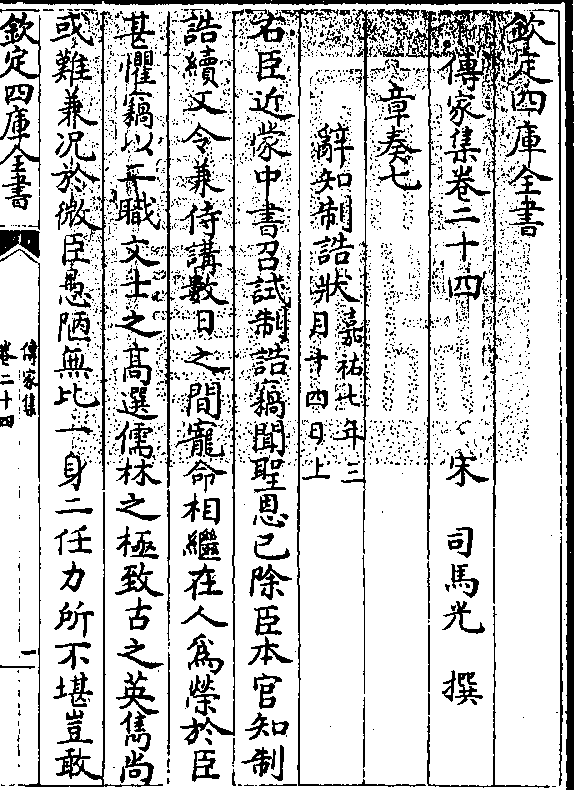 欽定四庫全書
傳家集卷二十四　宋　司馬光　撰
章奏七
辭知制誥狀嘉祐七年三月十四日上
右臣近蒙中書召試制誥竊聞聖恩已除臣本官知制
誥續又令兼侍講數日之間寵命相繼在人爲榮於臣
甚懼竊以二職文士之高選儒林之極致古之英雋尚
或難兼況於微臣愚陋無比一身二任力所不堪豈敢
欽定四庫全書
傳家集
卷二十四
一